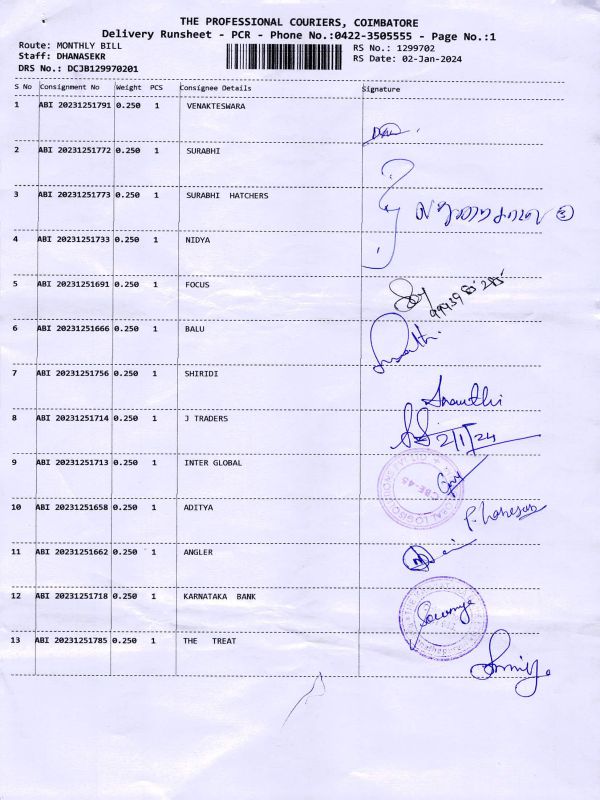 THE PROFESSIONAL COURIERS, COIMBATORE
Delivery Runsheet - PCR - Phone No.:0422-3505555 - Page No.:1
Route: MONTHLY BILL RS No.: 1299702
Staff: DHANASEKR RS Date: 02-Jan-2024
DRS No.: DCJB129970201
S No Consignment No Weight PCS Consignee Details Signature
1 ABI 20231251791 0.250 1 VENAKTESWARA
2 ABI 20231251772 0.250 1 SURABHI
3 ABI 20231251773 0.250 1 SURABHI HATCHERS
4 ABI 20231251733 0.250 1 NIDYA
5 ABI 20231251691 0.250 1 FOCUS
6 ABI 20231251666 0.250 1 BALU
7 ABI 20231251756 0.250 1 SHIRIDI
8 ABI 20231251714 0.250 1 J TRADERS
2/1/24
9 ABI 20231251713 0.250 1 INTER GLOBAL
CBE-45
10 ABI 20231251658 0.250 1 ADITYA
11 ABI 20231251662 0.250 1 ANGLER
12 ABI 20231251718 0.250 1 KARNATAKA BANK
13 ABI 20231251785 0.250 1 THE TREAT